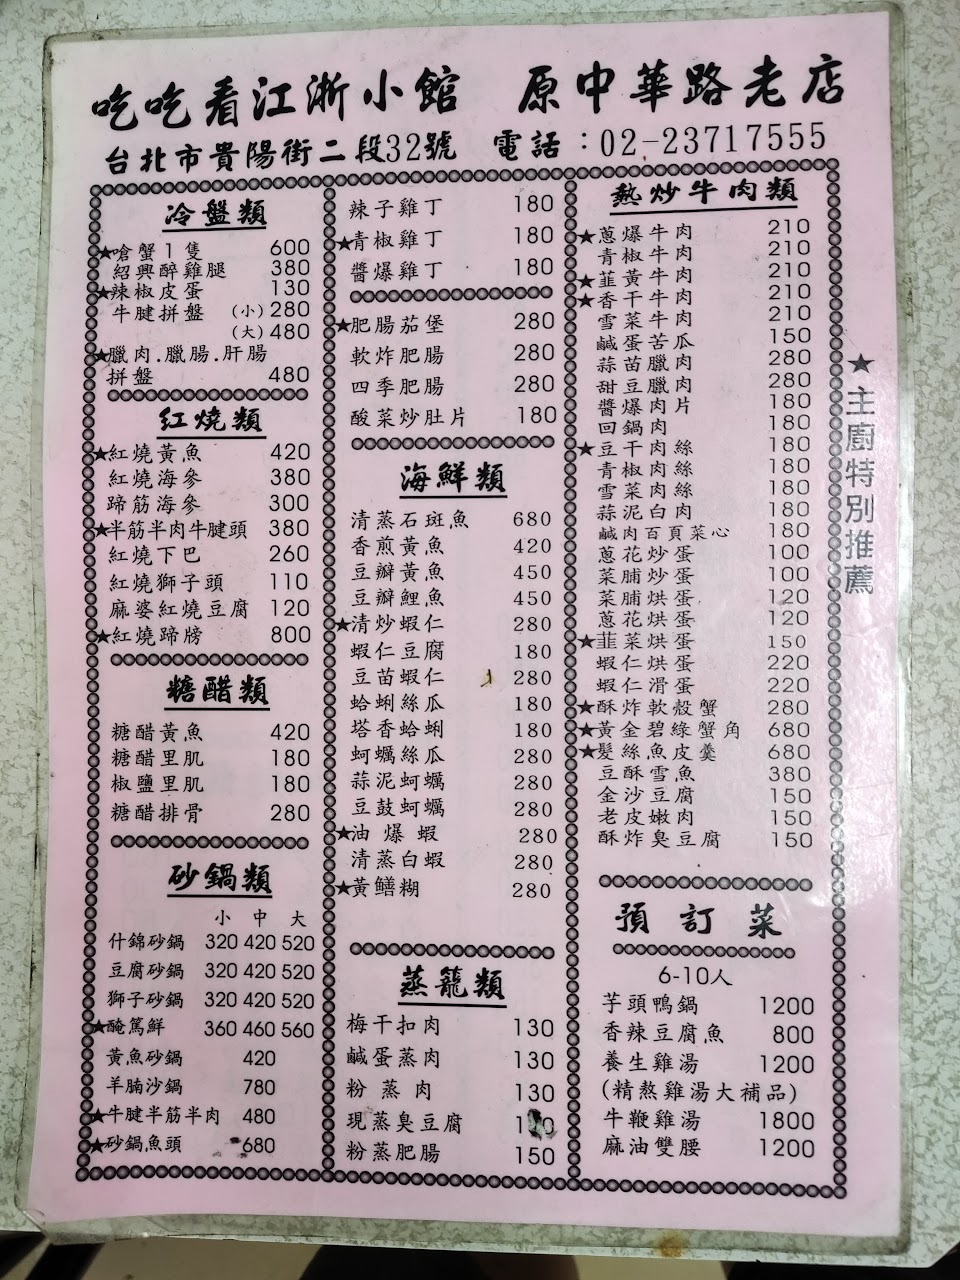 吃吃看江浙小館 原中華路老店
台北市貴陽街二段32號 電話：02-23717555
冷盤類
★嗆蟹1隻 600
紹興醉雞腿 380
★辣椒皮蛋 130
牛腱拼盤 (小) 280
(大) 480
★臘肉.臘腸.肝腸
拼盤 480
紅燒類
★紅燒黃魚 420
紅燒海參 380
蹄筋海參 300
★半筋半肉牛腱頭 380
紅燒下巴 260
紅燒獅子頭 110
麻婆紅燒豆腐 120
★紅燒蹄膀 800
糖醋類
糖醋黃魚 420
糖醋里肌 180
椒鹽里肌 180
糖醋排骨 280
砂鍋類
小 中 大
什錦砂鍋 320 420 520
豆腐砂鍋 320 420 520
獅子砂鍋 320 420 520
★醃篤鮮 360 460 560
黃魚砂鍋 420
羊腩沙鍋 780
★牛腱半筋半肉 480
★砂鍋魚頭 680
辣子雞丁 180
★青椒雞丁 180
醬爆雞丁 180
★肥腸茄堡 280
軟炸肥腸 280
四季肥腸 280
酸菜炒肚片 180
海鮮類
清蒸石斑魚 680
香煎黃魚 420
豆瓣黃魚 450
豆瓣鯉魚 450
★清炒蝦仁 280
蝦仁豆腐 180
豆苗蝦仁 280
蛤蜊絲瓜 180
塔香蛤蜊 180
蚵蠣絲瓜 280
蒜泥蚵蠣 280
豆鼓蚵蠣 280
★油爆蝦 280
清蒸白蝦 280
★黃鱔糊 280
蒸籠類
梅干扣肉 130
鹹蛋蒸肉 130
粉蒸肉 130
現蒸臭豆腐
粉蒸肥腸 150
熱炒牛肉類
★蔥爆牛肉 210
青椒牛肉 210
★韮黃牛肉 210
★香干牛肉 210
雪菜牛肉 210
鹹蛋苦瓜 150
蒜苗臘肉 280
甜豆臘肉 280
醬爆肉片 180
回鍋肉 180
★豆干肉絲 180
青椒肉絲 180
雪菜肉絲 180
蒜泥白肉 180
鹹肉百頁菜心 180
蔥花炒蛋 100
菜脯炒蛋 100
菜脯烘蛋 120
蔥花烘蛋 120
★韮菜烘蛋 150
蝦仁烘蛋 220
蝦仁滑蛋 220
★酥炸軟殼蟹 280
★黃金碧綠蟹角 680
★髮絲魚皮羹 680
豆酥雪魚 380
金沙豆腐 150
老皮嫩肉 150
酥炸臭豆腐 150
預訂菜
6-10人
芋頭鴨鍋 1200
香辣豆腐魚 800
養生雞湯 1200
(精熬雞湯大補品)
牛鞭雞湯 1800
麻油雙腰 1200
★主廚特別推薦